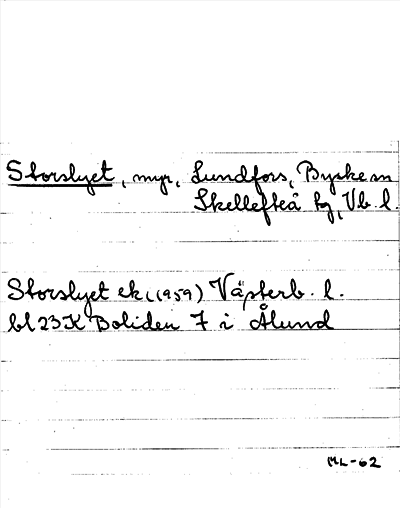 Storslyet, myr, Lundfors, Byske sn
Skellefteå kg, Vb. l.
Storslyet ek (1959) Västerb. l.
bl 23K Boliden 7 i Ålund
ML-62